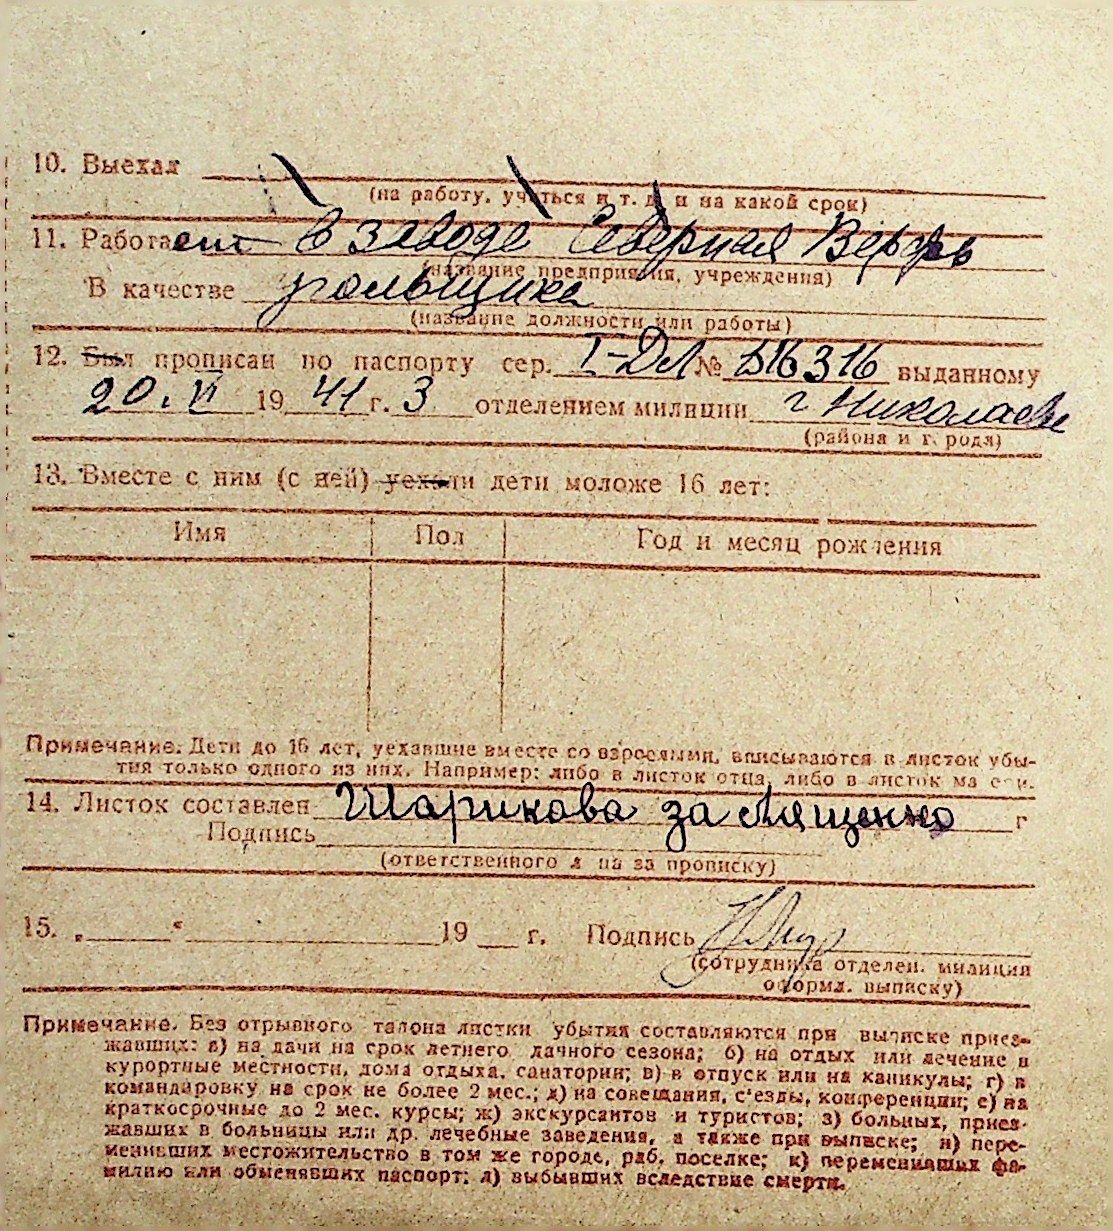 10. Выехал
(на работу, учиться и т. д. и на какой срок)
11. Работает в заводе Северная Верфь
(название предприятия, учреждения)
В качестве угольщика
(название должности или работы)
12. Был прописан по паспорту сер. I-ДЛ № 516316 выданному
20. VI 1941 г. 3 отделением милиции г Николаева
(района и города)
13. Вместе с ним (с ней) уехали дети моложе 16 лет:
Имя Пол Год и месяц рождения
Примечание. Дети до 16 лет, уехавшие вместе со взрослыми, вписываются в листок убы-
тия только одного из них. Например: либо в листок отца, либо в листок матери.
14. Листок составлен Шарикова за Лященко г
Подпись
(ответственного л на за прописку)
15. „ “ 19 г. Подпись
(сотрудника отделен. милиции
оформл. выписку)
Примечание. Без отрывного талона листки убытия составляются при выписке приез-
жавших: а) на дачи на срок летнего дачного сезона; б) на отдых или лечение в
курортные местности, дома отдыха, санатории; в) в отпуск или на каникулы; г) в
командировку на срок не более 2 мес.; д) на совещания, с'езды, конференции; е) на
краткосрочные до 2 мес. курсы; ж) экскурсантов и туристов; з) больных, приез-
жавших в больницы или др. лечебные заведения, а также при выписке; и) пере-
менивших местожительство в том же городе, раб. поселке; к) переменивших фа-
милию или обменявших паспорт; л) выбывших вследствие смерти.